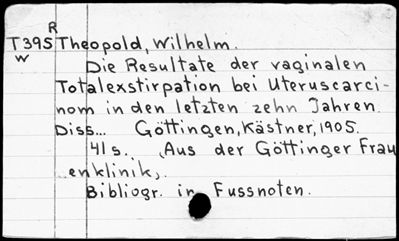 R
T395 Theopold, Wilhelm.
W
Die Resultate der vaginalen
Totalexstirpation bei Uteruscarci-
nom in den letzten zehn Jahren.
Diss... Göttingen, Kästner, 1905.
41 s. „Aus der Göttinger Frau
enklinik„.
Bibliogr. in Fussnoten.